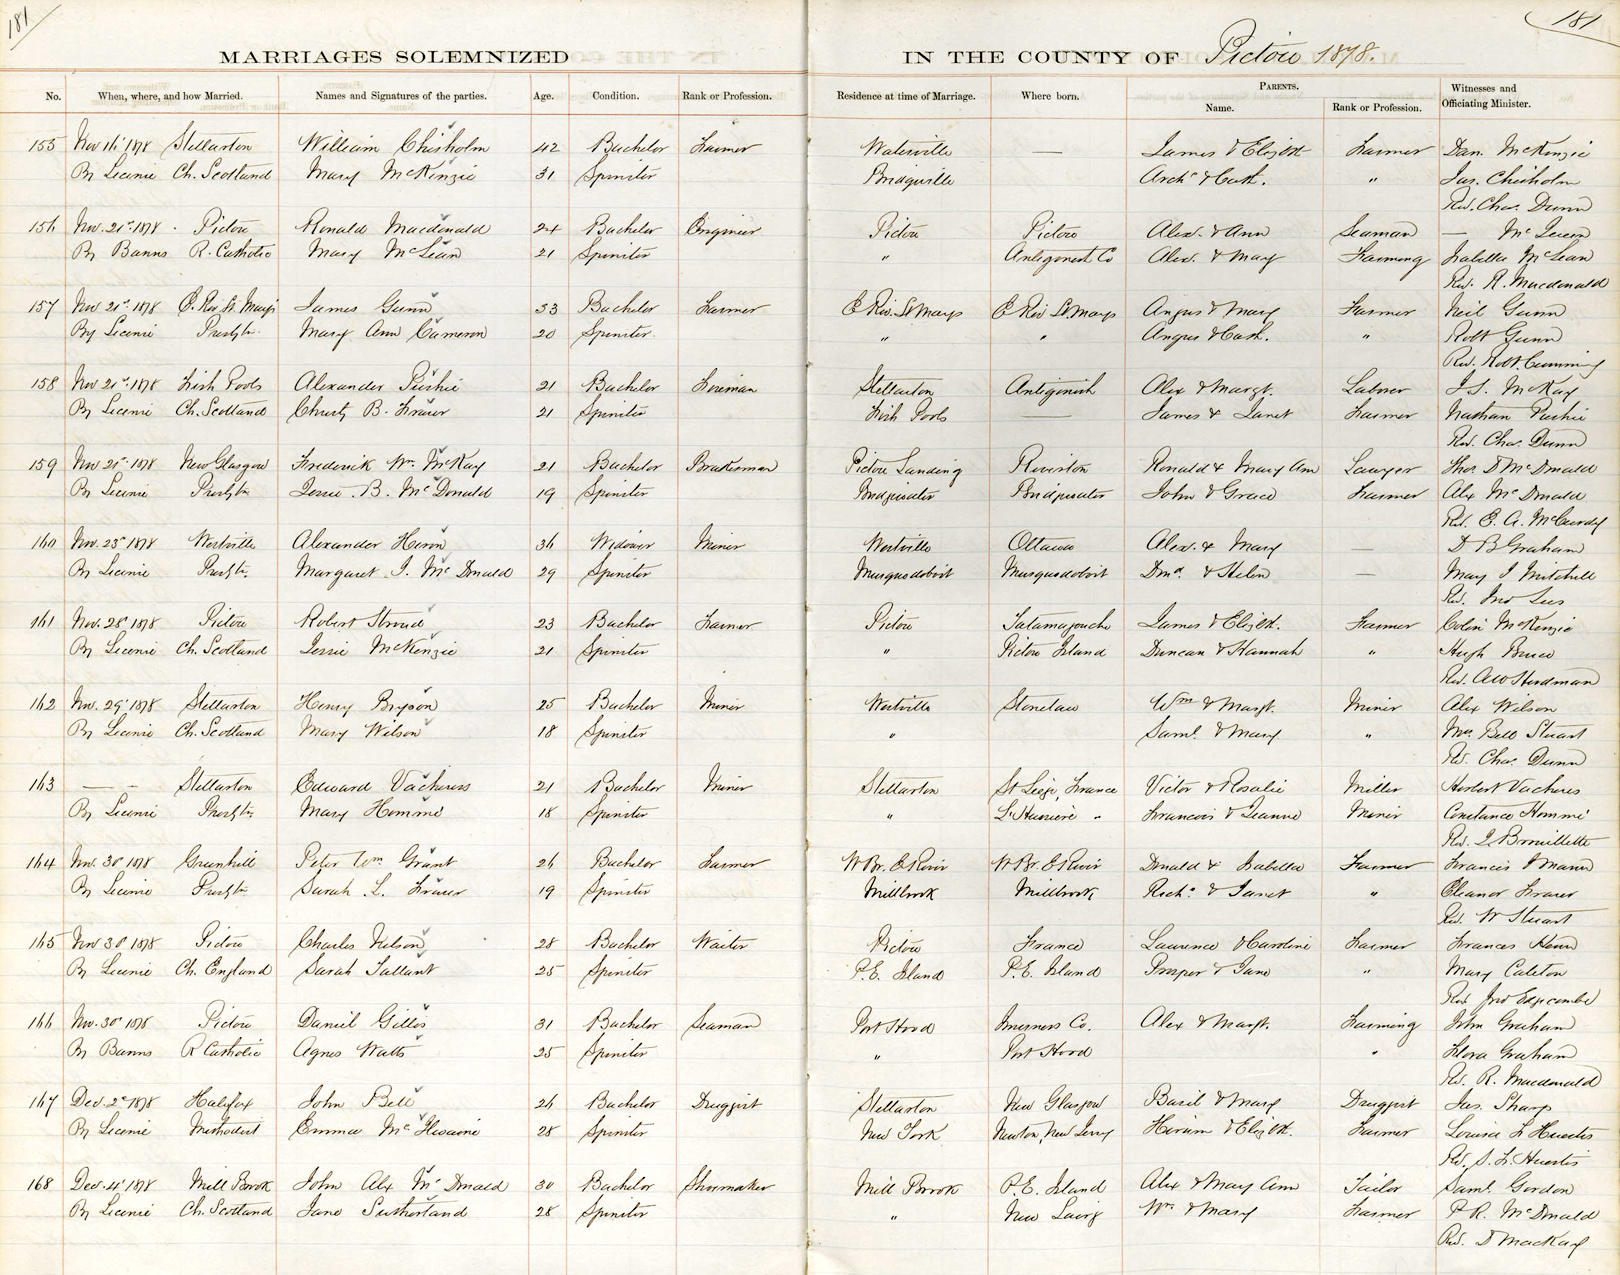 181
181
MARRIAGES SOLEMNIZED IN THE COUNTY OF Pictou 1878.
No. When, where, and how Married. Names and Signatures of the parties. Age. Condition. Rank or Profession. Residence at time of Marriage. Where born. PARENTS. Name. Rank or Profession. Witnesses and Officiating Minister.
155 Nov 1878 Stellarton William Chisholm 42 Bachelor Farmer Waterville — James & Elizbth Farmer Dan. McKenzie
By License Ch. Scotland Mary McKenzie 31 Spinster Bridgeville Archd & Cath. " Jas. Chisholm
Rev. Chas. Dunn
156 Nov. 21st 1878 Pictou Ronald Macdonald 24 Bachelor Engineer Pictou Pictou Alex. & Ann Seaman — McQueen
By Banns R. Catholic Mary McLean 21 Spinster " Antigonish Co Alex. & Mary Farming Isabella McLean
Rev. R. Macdonald
157 Nov 21st 1878 E. Riv. St. Mary's James Gunn 33 Bachelor Farmer E Riv. St Marys E Riv St. Marys Angus & Mary Farmer Neil Gunn
By License Presbtn. Mary Ann Cameron 20 Spinster. " " Angus & Cath. " Robt Gunn
Rev. Robt Cumming
158 Nov 21st 1878 Fish Pools Alexander Purkie 21 Bachelor Foreman Stellarton Antigonish Alex & Margt. Laborer J. S. McKay
By License Ch. Scotland Christy B. Fraser 21 Spinster Fish Pools — James & Janet Farmer Nathan Purkie
Rev. Chas. Dunn
159 Nov 21st 1878 New Glasgow Frederick Wm. McKay 21 Bachelor Brakesman Pictou Landing Riverton Ronald & Mary Ann Lawyer Thos. D McDonald
By License Presbtn Jessie B. McDonald 19 Spinster Bridgwater Bridgwater John & Grace Farmer Alex McDonald
Rev. E. A. McCurdy
160 Nov. 23rd 1878 Westville Alexander Heron 36 Widower Miner Westville Ottawa Alex. & Mary — D B Graham
By License Presbtn. Margaret J. McDonald 29 Spinster Musquodoboit Musquodoboit Dond. & Helen — Mary J Mitchell
Rev. Jno Lees
161 Nov. 28 1878 Pictou Robert Stroud 23 Bachelor Farmer Pictou Tatamagouche James & Elizbth. Farmer Colin McKenzie
By License Ch. Scotland Jessie McKenzie 21 Spinster " Pictou Island Duncan & Hannah " Hugh Bruce
Rev. A W Herdman
162 Nov. 29 1878 Stellarton Henry Bryson 25 Bachelor Miner Westville Stonelaw Wm & Margt. Miner Alex Wilson
By License Ch. Scotland Mary Wilson 18 Spinster " Saml. & Mary " Mrs. Bell Stuart
Rev. Chas. Dunn
163 — - Stellarton Edward Vacheress 21 Bachelor Miner Stellarton St Liege, France Victor & Rosalie Miller Herbert Vacheres
By License Presbtn Mary Hommé 18 Spinster " " Francois & Jeanne Miner Constance Hommé
Rev. J. Brouillette
164 Nov. 30 1878 Greenhill Peter Wm Grant 26 Bachelor Farmer W Br. E River W Br. E River Donald & Isabella Farmer Francis P Mann
By License Presbtn Sarah L. Fraser 19 Spinster Millbrook Millbrook Richd. & Janet " Eleanor Fraser
Rev. W Stuart
165 Nov 30 1878 Pictou Charles Nelson 28 Bachelor Waiter Pictou France Laurence & Caroline Farmer Frances Henn
By License Ch. England Sarah Tallant 25 Spinster P.E. Island P.E. Island Prosper & Jane " Mary Calston
Rev Jno Edgecombe
166 Nov. 30 1878 Pictou Daniel Gillis 31 Bachelor Seaman Port Hood Inverness Co. Alex & Margt. Farming John Graham
By Banns R Catholic Agnes Watts 25 Spinster " Port Hood " Flora Graham
Rev. R. Macdonald
167 Dec. 2nd 1878 Halifax John Bell 26 Bachelor Druggist Stellarton New Glasgow Basil & Mary Druggist Jas. Sharp
By License Methodist Emma McIlwaine 28 Spinster New York Newton, New Jersey Hiram & Elizbth. Farmer Louisa F Huestis
Rev. S. F. Huestis
168 Dec. 4 1878 Mill Brook John Alex McDonald 30 Bachelor Shoemaker Mill Brook P.E. Island Alex & Mary Ann Tailor Saml. Gordon
By License Ch. Scotland Jane Sutherland 28 Spinster " New Lairg Wm. & Mary Farmer P. R. McDonald
Rev. D MacKay